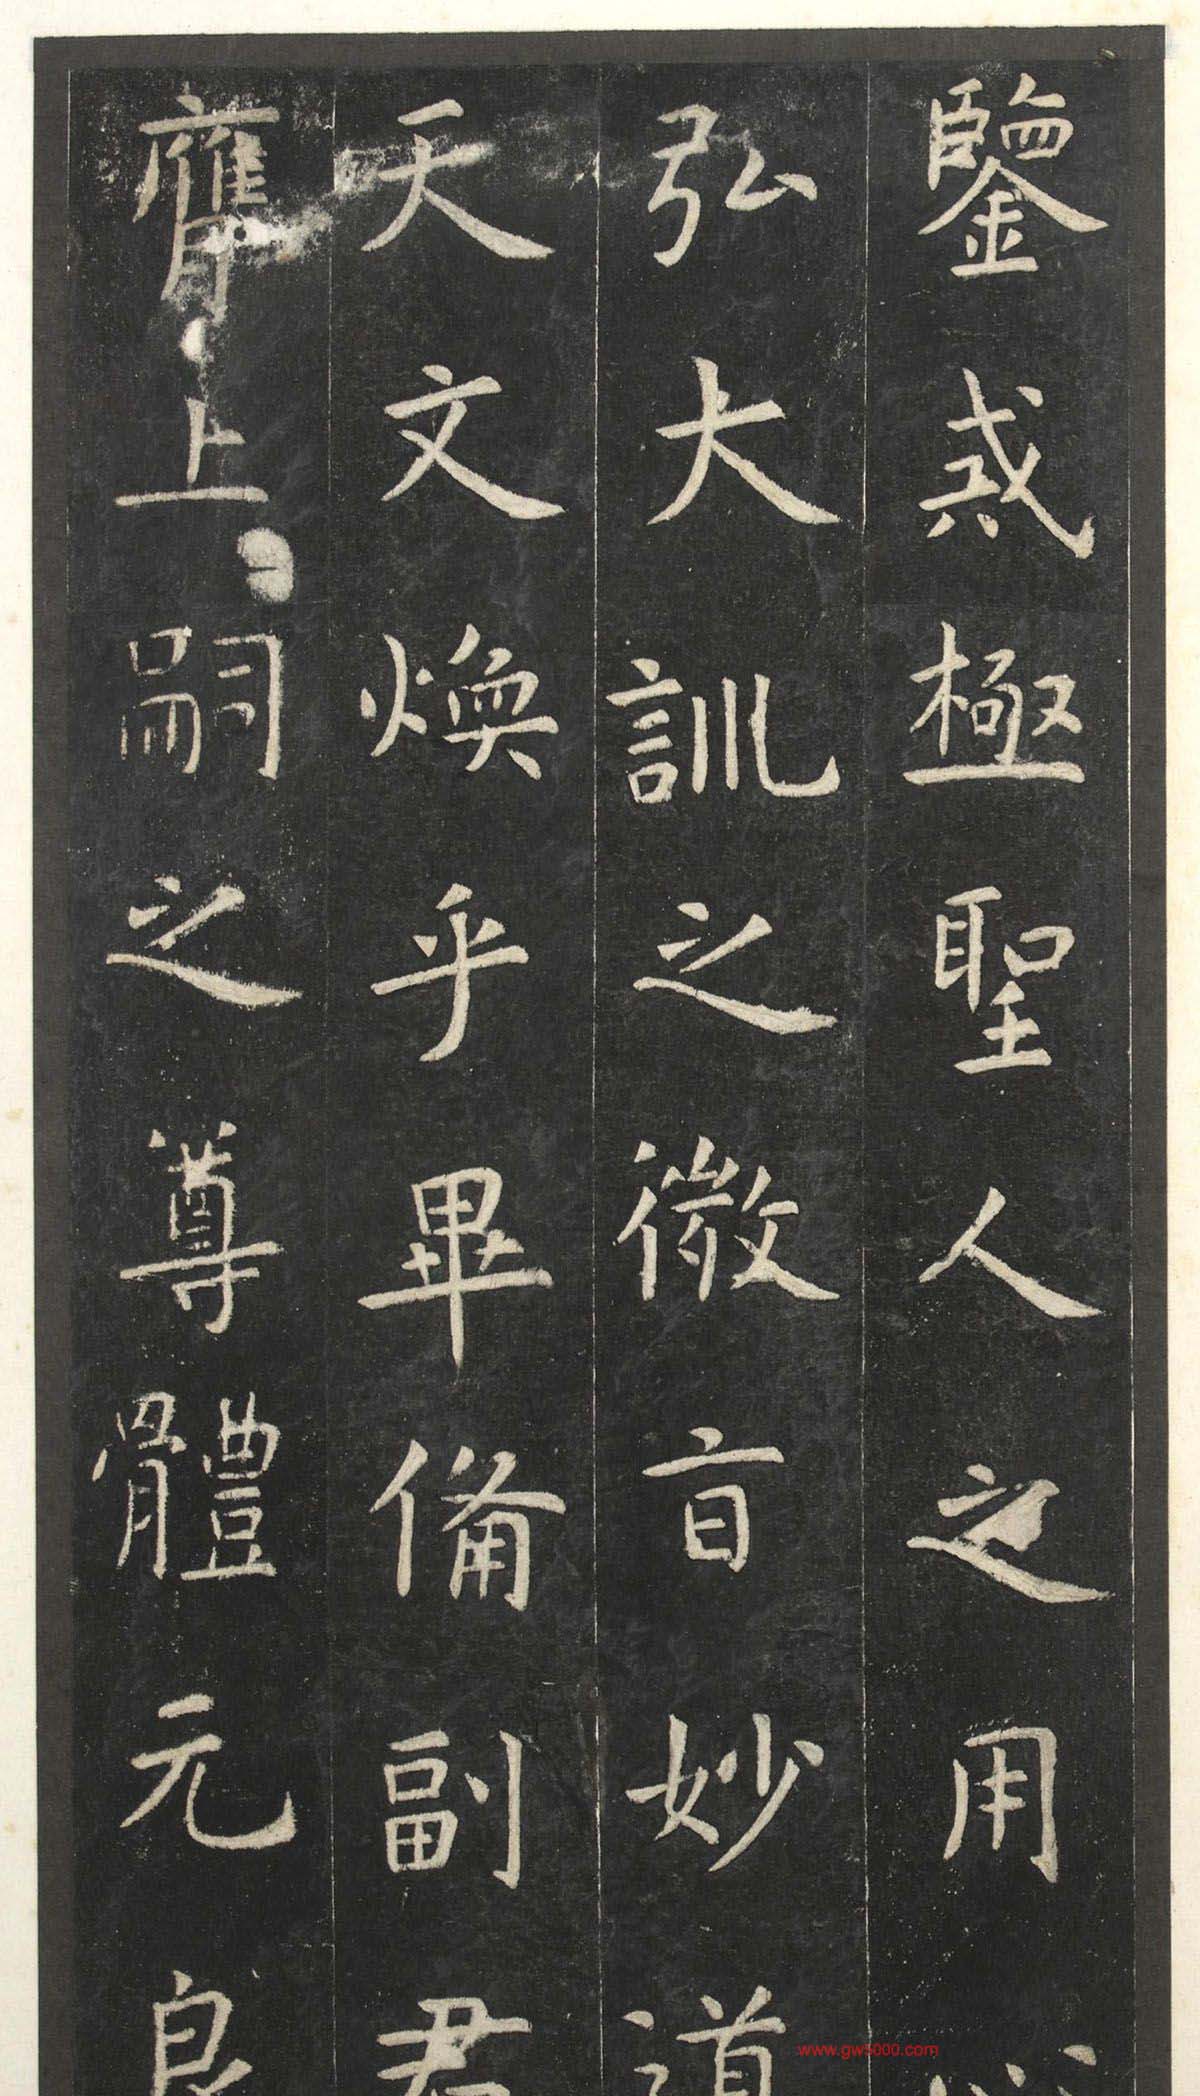 鑒戒極聖人之用心
弘大訓之微旨妙道
天文煥乎畢備副君
膺上嗣之尊體元良
www.gw5000.com